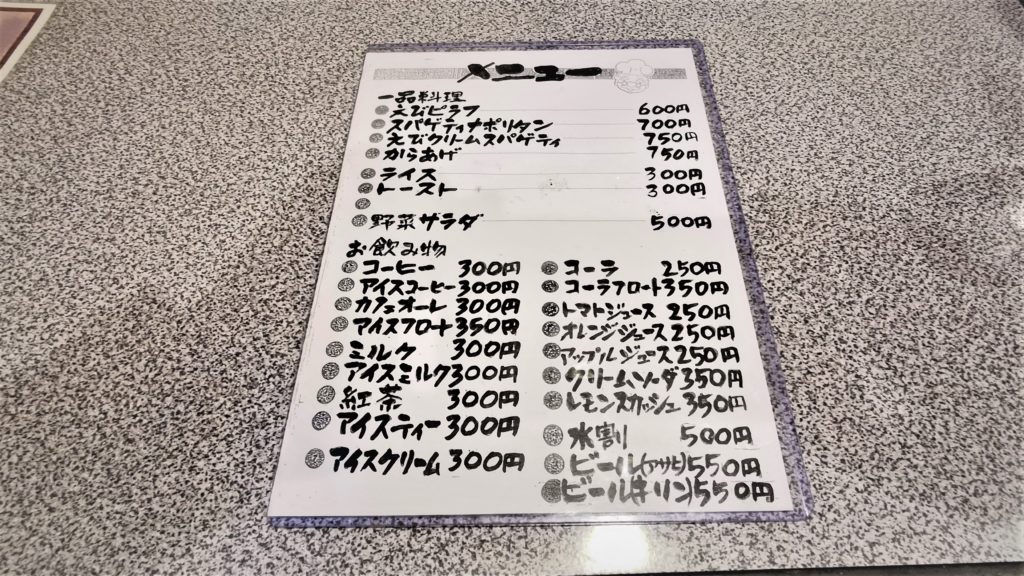 メニュー
一品料理
えびピラフ 600円
スパゲティナポリタン 700円
えびクリームスパゲティ 750円
からあげ 750円
ライス 300円
トースト 300円
野菜サラダ 500円
お飲み物
コーヒー 300円
アイスコーヒー 300円
カフェオーレ 300円
アイスフロート 350円
ミルク 300円
アイスミルク 300円
紅茶 300円
アイスティー 300円
アイスクリーム 300円
コーラ 250円
コーラフロート 350円
トマトジュース 250円
オレンジジュース 250円
アップルジュース 250円
クリームソーダ 350円
レモンスカッシュ 350円
水割 500円
ビール(アサヒ) 550円
ビールキリン 550円